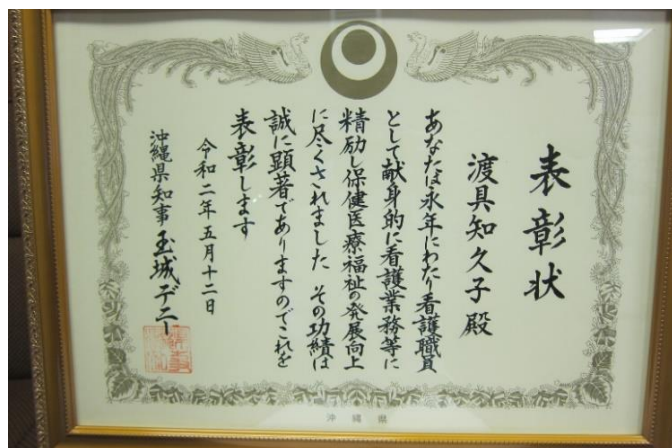 表彰状
渡具知久子殿
あなたは永年にわたり看護職員
として献身的に看護業務等に
精励し保健医療福祉の発展向上
に尽くされました その功績は
誠に顕著でありますのでこれを
表彰します
令和二年五月十二日
沖縄県知事 玉城デニー
沖縄県